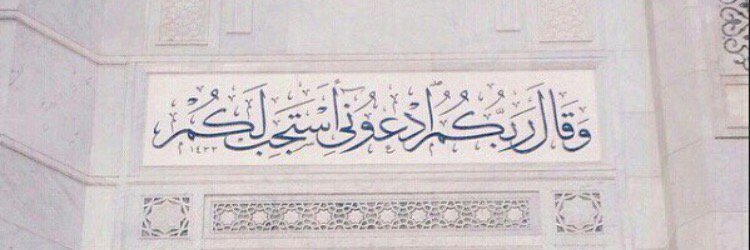 وَقَالَ رَبُّكُمُ ادْعُونِي أَسْتَجِبْ لَكُمْ
١٤٣٣